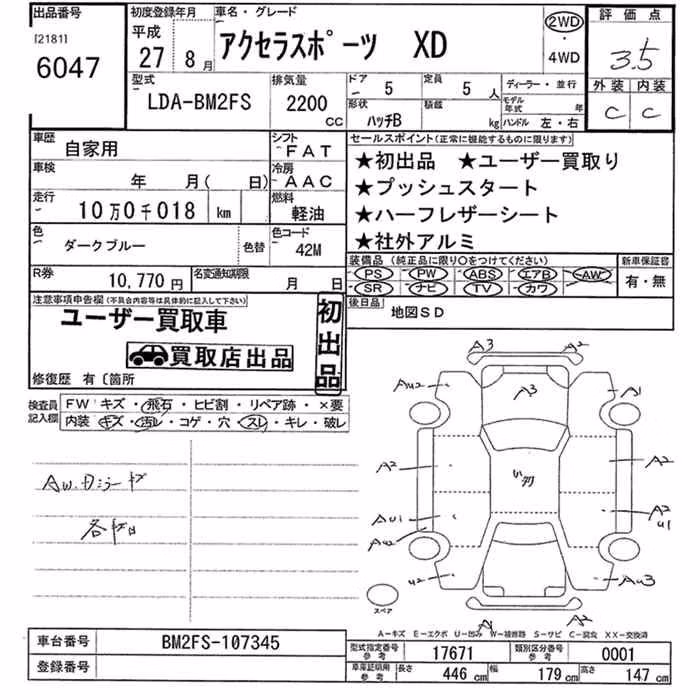 出品番号
[2181]
6047
初度登録年月
平成
27 8月
車名・グレード
アクセラスポーツ XD
2WD
・
4WD
評価点
3.5
外装 内装
C C
型式
LDA-BM2FS
排気量
2200
CC
ドア
5
定員
5人
形状
ハッチB
積載
kg
ディーラー・並行
モデル年式
年
ハンドル 左・右
車歴
自家用
シフト
FAT
車検
年 月( 日)
冷房
AAC
走行
10万0千018 km
燃料
軽油
色
ダークブルー
色替
色コード
42M
R券
10,770円
名変通知期限
月 日
セールスポイント(正常に機能するものに限ります)
★初出品 ★ユーザー買取り
★プッシュスタート
★ハーフレザーシート
★社外アルミ
装備品(純正品に限り○をつけてください)
PS PW ABS エアB AW
SR ナビ TV カワ
新車保証書
有・無
後日品
地図SD
注意事項申告欄(不具合内容等は具体的に記入して下さい)
ユーザー買取車
買取店出品
初出品
修復歴 有〔箇所
検査員
記入欄
FW キズ・飛石・ヒビ割・リペア跡・×要
内装 キズ・汚レ・コゲ・穴・スレ・キレ・破レ
A3 A2
AU2 A3 A1
A2 A2
AU1 A2
U1
U2 AU3
A1 A2
スペア
A-キズ E-エクボ U-凹み W-補修跡 S-サビ C-腐食 XX-交換済
車台番号
BM2FS-107345
登録番号
型式指定番号
参考
17671
類別区分番号
参考
0001
車庫証明用
参考
長さ
446 cm
幅
179 cm
高さ
147 cm